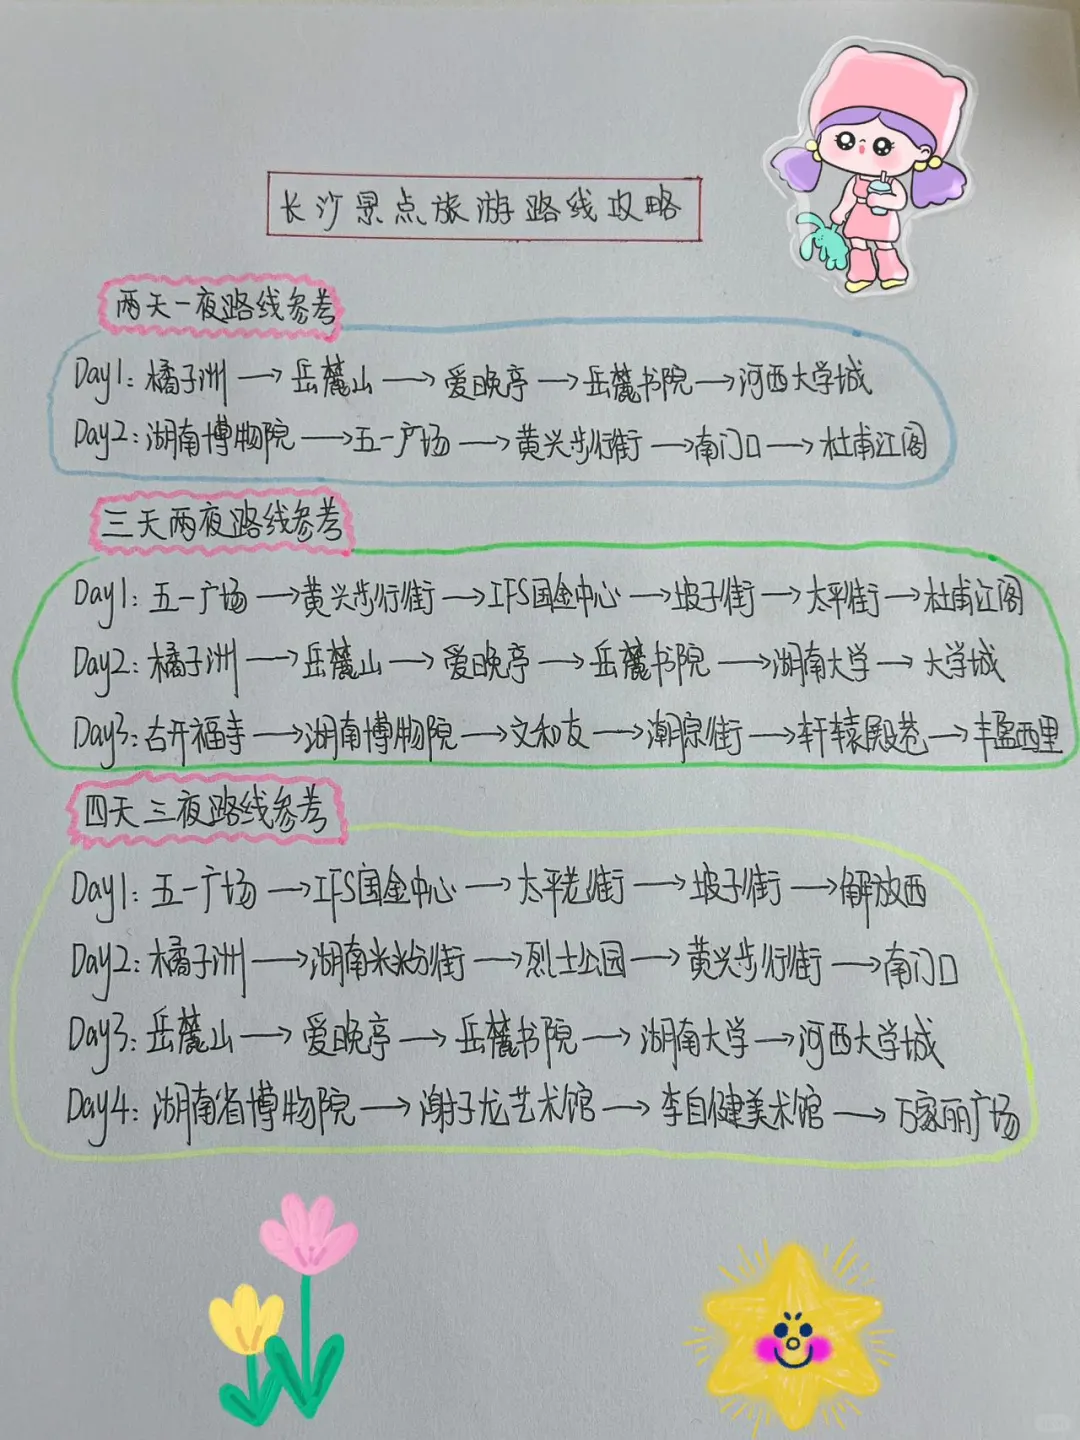 长沙景点旅游路线攻略
两天一夜路线参考
Day1: 橘子洲→岳麓山→爱晚亭→岳麓书院→河西大学城
Day2: 湖南博物院→五一广场→黄兴步行街→南门口→杜甫江阁
三天两夜路线参考
Day1: 五一广场→黄兴步行街→IFS国金中心→坡子街→太平街→杜甫江阁
Day2: 橘子洲→岳麓山→爱晚亭→岳麓书院→湖南大学→大学城
Day3: 古开福寺→湖南博物院→文和友→潮宗街→轩辕殿巷→丰盈西里
四天三夜路线参考
Day1: 五一广场→IFS国金中心→太平老街→坡子街→解放西
Day2: 橘子洲→湖南米粉街→烈士公园→黄兴步行街→南门口
Day3: 岳麓山→爱晚亭→岳麓书院→湖南大学→河西大学城
Day4: 湖南省博物院→谢子龙艺术馆→李自健美术馆→万家丽广场